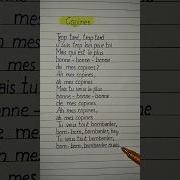 Copines
Trop tard, trop tard
J'suis trop loin pour toi
Mais qui est la plus
bonne - bonne - bonne
de mes copines?
Ah mes copines,
ah mes copines
Mais tu veux la plus
bonne - bonne - bonne
de mes copines
Ah mes copines,
ah mes copines
Tu veux tout bombarder,
bom - bom, bombarder, hey
Tu veux tout bombarder,
bom - bom, bombarder ouais
mes
mes